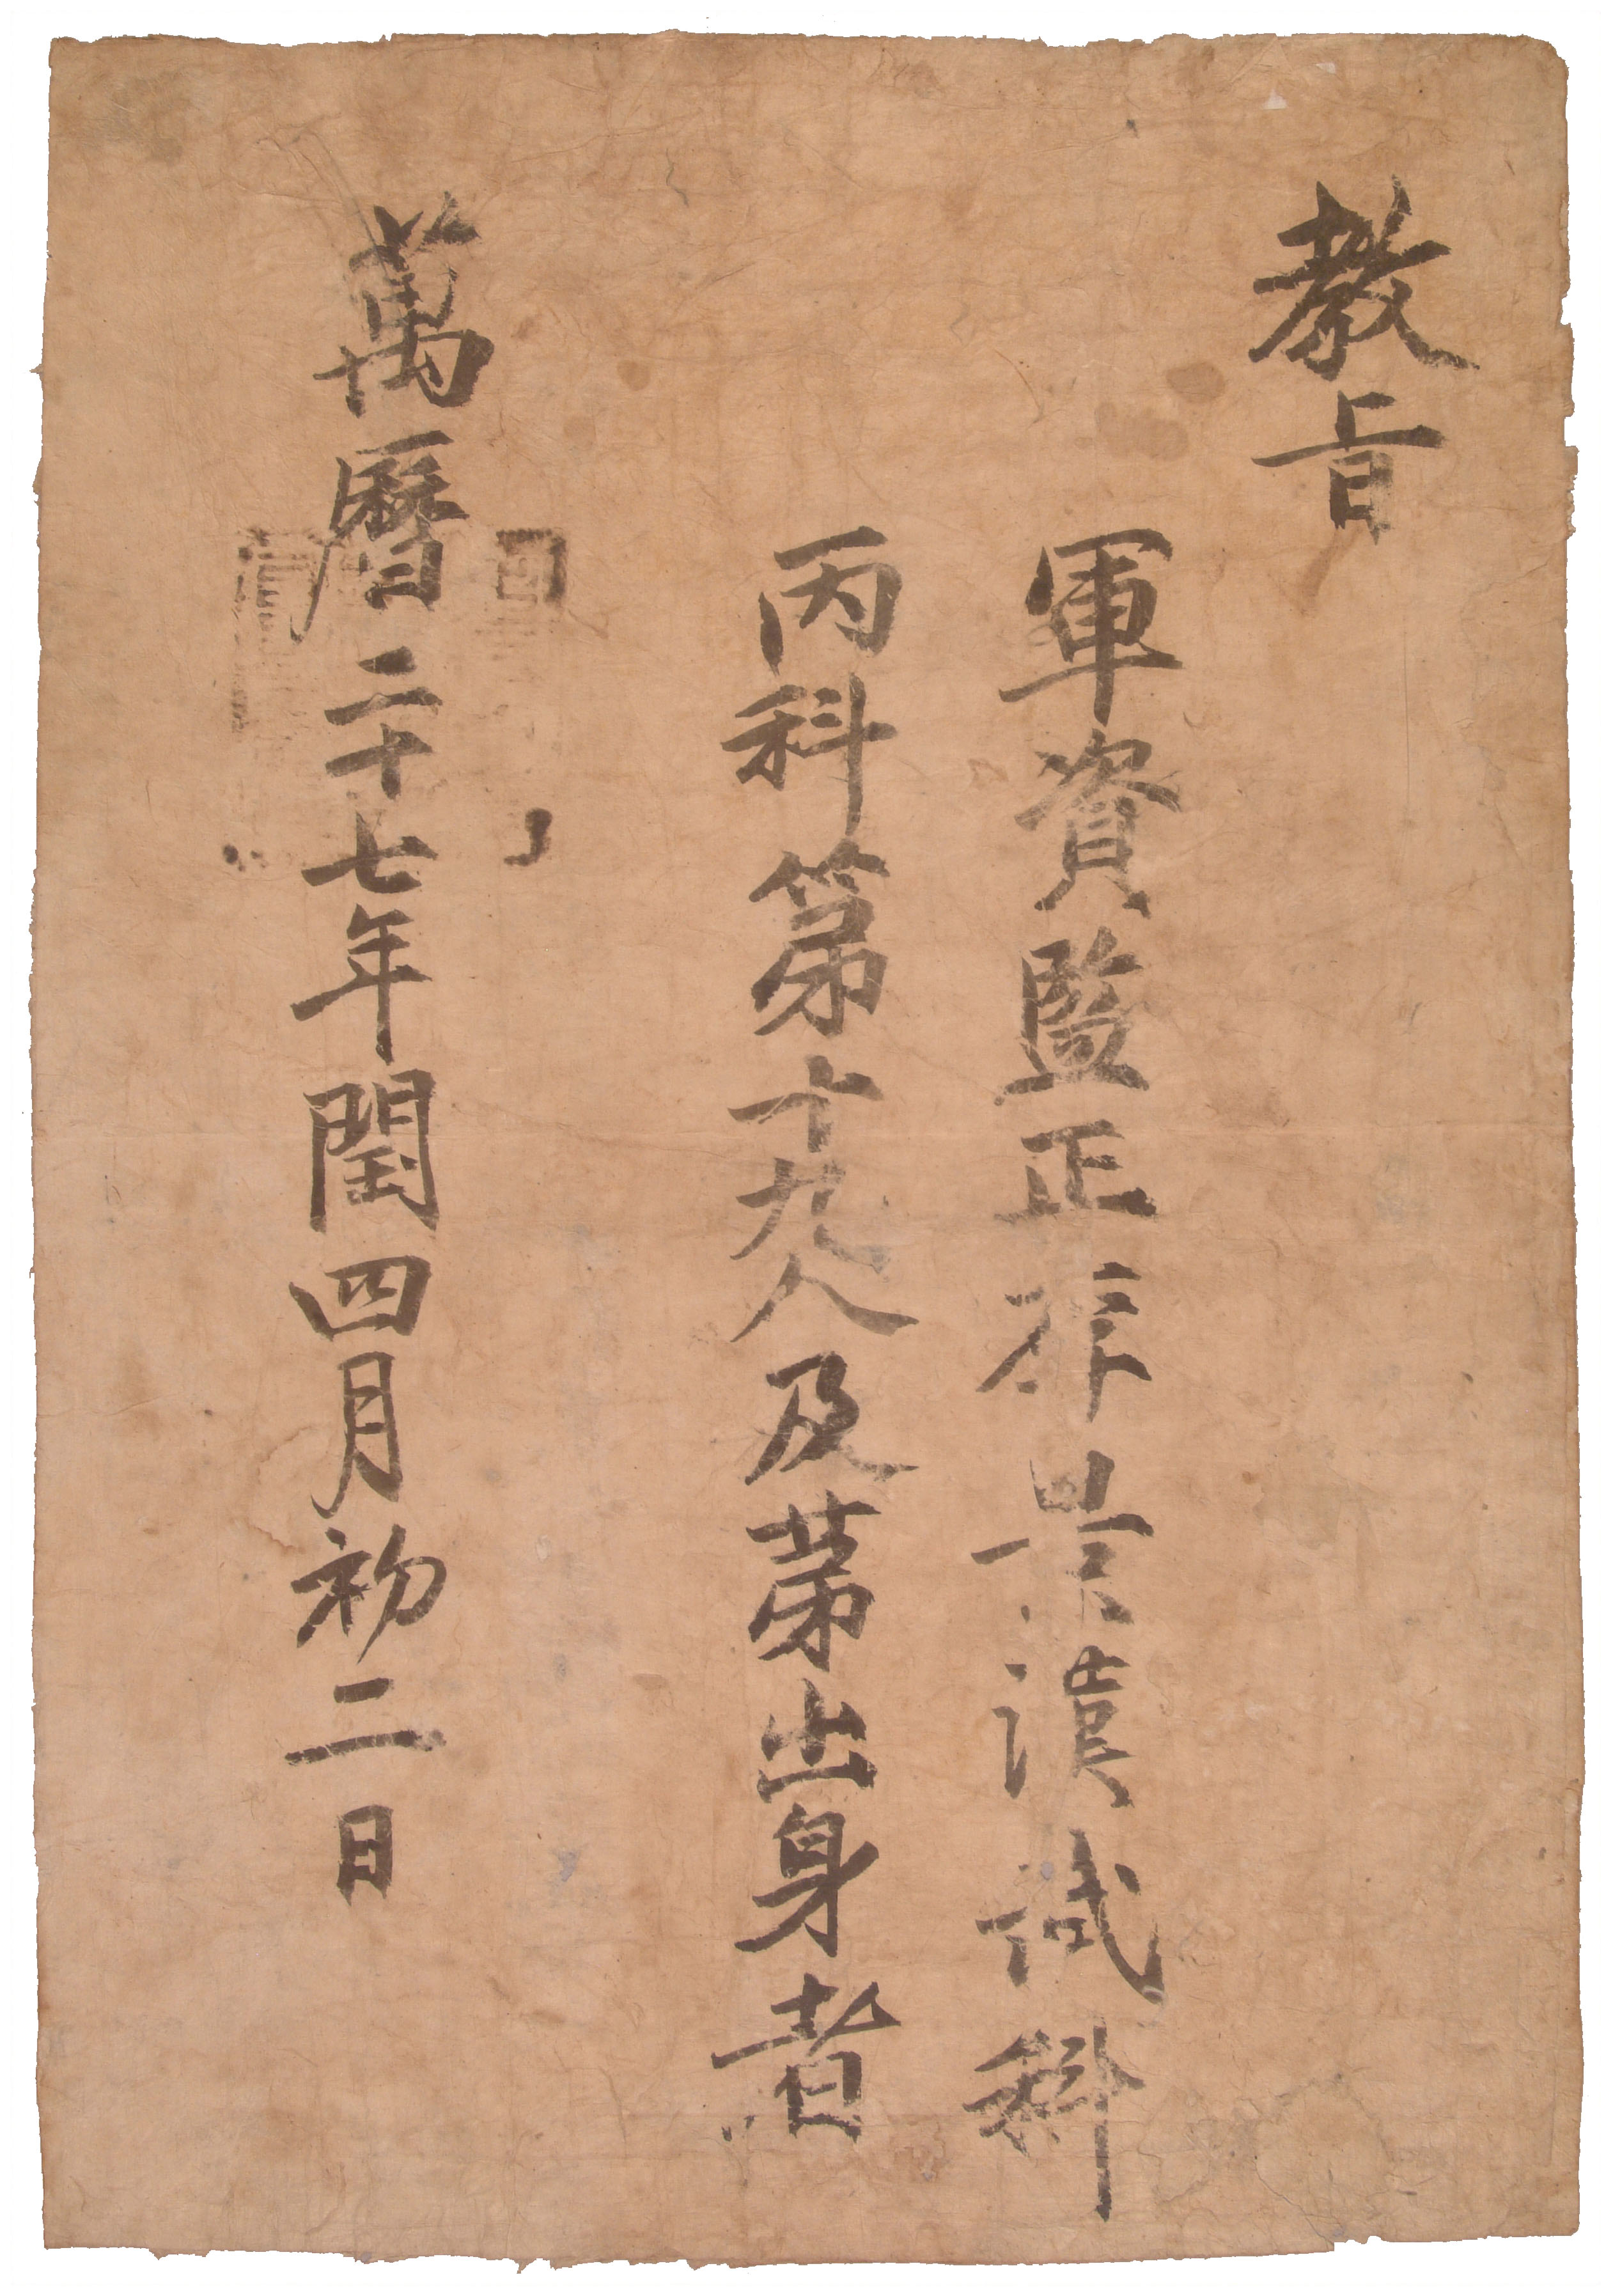 教旨
軍資監正漢武科
丙科第十九人及第出身者
萬曆二十七年閏四月初二日